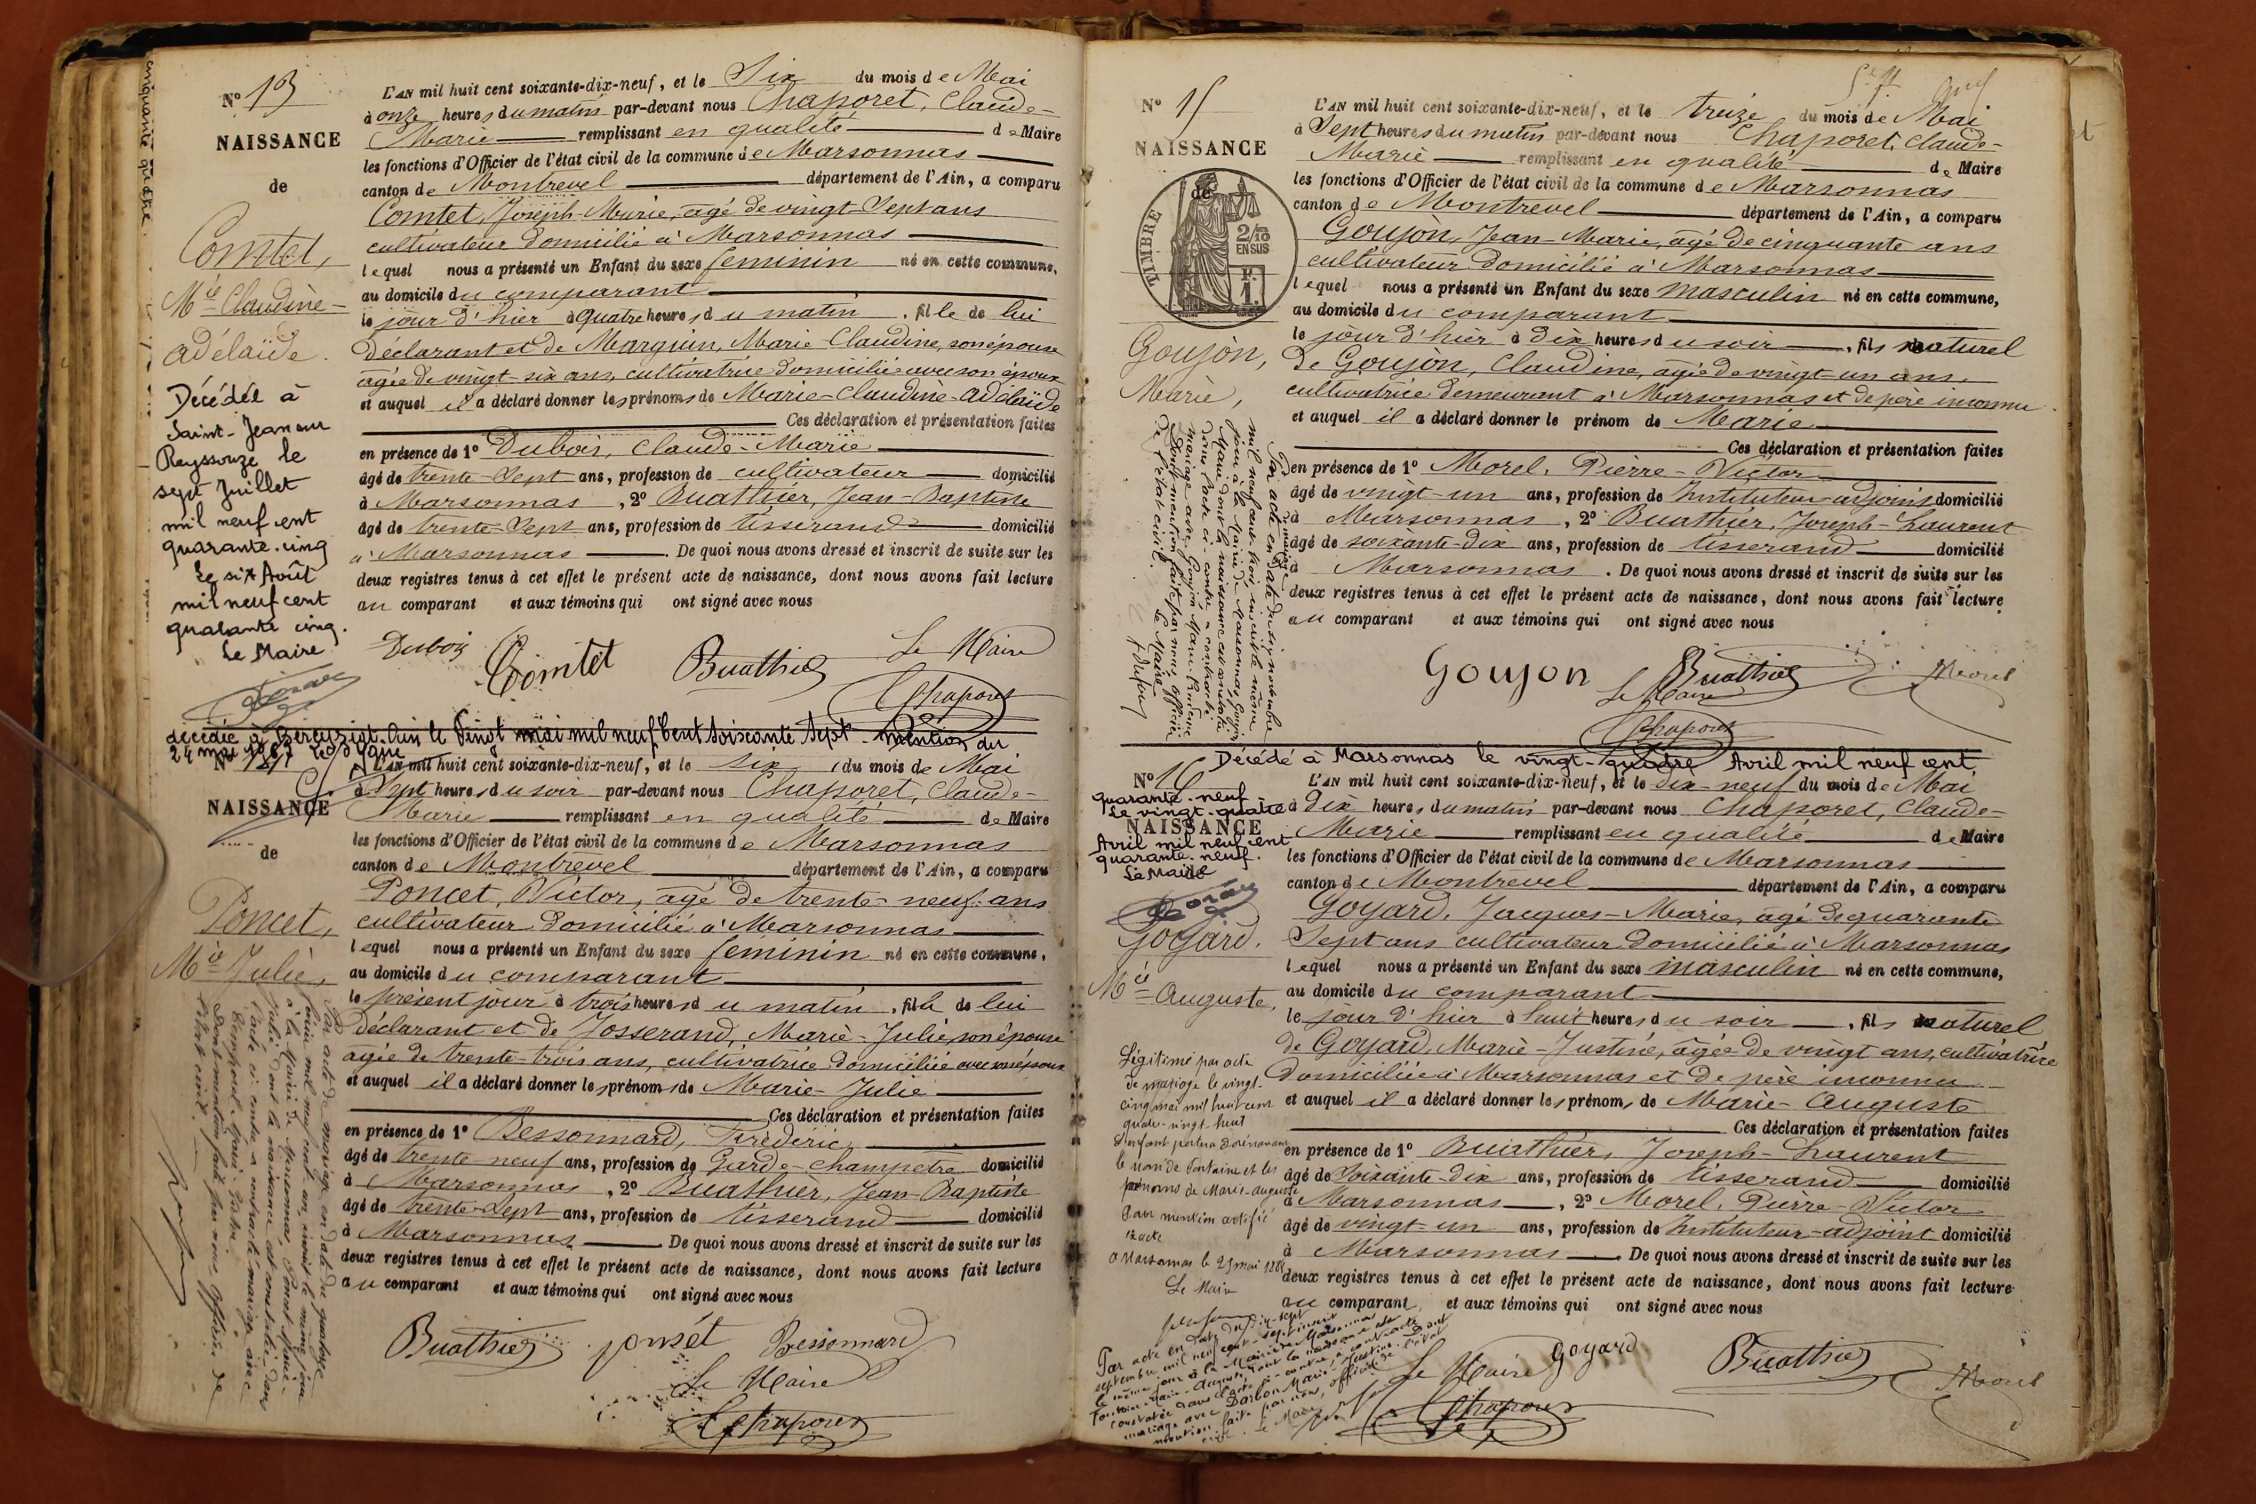 cinquante quatre
Nº 13
NAISSANCE
de
Comtet,
Mie Claudine-
adélaïde.
Décédée à
Saint-Jean sur
Reyssouze le
sept Juillet
mil neuf cent
quarante-cinq
Le six Août
mil neuf cent
quarante cinq.
Le Maire
L'AN mil huit cent soixante-dix-neuf, et le Six du mois de Mai
à onze heures du matin par-devant nous Chaporet, Claude-
Marie remplissant en qualité de Maire
les fonctions d'Officier de l'état civil de la commune de Marsonnas
canton de Montrevel département de l'Ain, a comparu
Comtet, Joseph-Marie, âgé de vingt-Sept ans
cultivateur domicilié à Marsonnas
lequel nous a présenté un Enfant du sexe féminin né en cette commune,
au domicile du comparant
le jour d'hier à quatre heures du matin, fille de lui
déclarant et de Marguin, Marie-Claudine, son épouse
âgée de vingt-six ans, cultivatrice domiciliée avec son époux
et auquel il a déclaré donner les prénoms de Marie-Claudine-adélaïde
Ces déclaration et présentation faites
en présence de 1º Dubois, Claude-Marie
âgé de trente-Sept ans, profession de cultivateur domicilié
à Marsonnas, 2º Buathier, Jean-Baptiste
âgé de trente-Sept ans, profession de tisserand domicilié
à Marsonnas. De quoi nous avons dressé et inscrit de suite sur les
deux registres tenus à cet effet le présent acte de naissance, dont nous avons fait lecture
au comparant et aux témoins qui ont signé avec nous
Dubois Comtet Buathier Le Maire
Chaporet
décédée à Béreyziat-Ain le Vingt mai mil neuf Cent Soixante Sept - mention du
24 mai 1967
Nº 14
NAISSANCE
de
Poncet,
Mie Julie,
Par acte de mariage en date du quatorze
mil neuf cent un, inscrit le même jour
à la Mairie de Marsonnas, Poncet Marie-
Julie dont la naissance est constatée dans
l'acte ci-contre a contracté mariage avec
Dont mention faite par nous, officier de
l'état civil.
L'AN mil huit cent soixante-dix-neuf, et le six du mois de Mai
à Sept heures du soir par-devant nous Chaporet, Claude-
Marie remplissant en qualité de Maire
les fonctions d'Officier de l'état civil de la commune de Marsonnas
canton de Montrevel département de l'Ain, a comparu
Poncet, Victor, âgé de trente-neuf ans
cultivateur domicilié à Marsonnas
lequel nous a présenté un Enfant du sexe féminin né en cette commune,
au domicile du comparant
le présent jour à trois heures du matin, fille de lui
déclarant et de Josserand, Marie-Julie, son épouse
âgée de trente-trois ans, cultivatrice domiciliée avec son époux
et auquel il a déclaré donner les prénoms de Marie-Julie
Ces déclaration et présentation faites
en présence de 1º Bessonnard, Frédéric,
âgé de trente-neuf ans, profession de Garde-champêtre domicilié
à Marsonnas, 2º Buathier, Jean-Baptiste
âgé de trente-Sept ans, profession de tisserand domicilié
à Marsonnas. De quoi nous avons dressé et inscrit de suite sur les
deux registres tenus à cet effet le présent acte de naissance, dont nous avons fait lecture
au comparant et aux témoins qui ont signé avec nous
Buathier ponsét Bessonnard
Le Maire
Chaporet
Nº 15
NAISSANCE
de
TIMBRE
2/10
EN SUS
Goujon,
Marie,
Par acte en date du six novembre
mil neuf cent trois inscrit le même
jour à la Mairie de Marsonnas, Goujon
Marie dont la naissance est constatée
dans l'acte ci-contre, a contracté
mariage avec Goujon Marie
Dont mention faite par nous, officier
de l'état civil.
Le Maire
L'AN mil huit cent soixante-dix-neuf, et le treize du mois de Mai
à Sept heures du matin par-devant nous Chaporet, Claude-
Marie remplissant en qualité de Maire
les fonctions d'Officier de l'état civil de la commune de Marsonnas
canton de Montrevel département de l'Ain, a comparu
Goujon, Jean-Marie, âgé de cinquante ans
cultivateur domicilié à Marsonnas
lequel nous a présenté un Enfant du sexe masculin né en cette commune,
au domicile du comparant
le jour d'hier à dix heures du soir, fils naturel
de Goujon, Claudine, âgée de vingt-un ans,
cultivatrice demeurant à Marsonnas et de père inconnu
et auquel il a déclaré donner le prénom de Marie
Ces déclaration et présentation faites
en présence de 1º Morel, Pierre-Victor
âgé de vingt-un ans, profession de Instituteur-adjoint domicilié
à Marsonnas, 2º Buathier, Joseph-Laurent
âgé de soixante-dix ans, profession de tisserand domicilié
à Marsonnas. De quoi nous avons dressé et inscrit de suite sur les
deux registres tenus à cet effet le présent acte de naissance, dont nous avons fait lecture
au comparant et aux témoins qui ont signé avec nous
Goujon Buathier Morel
Le Maire
Chaporet
Décédé à Marsonnas le vingt-quatre Avril mil neuf cent
quarante-neuf
Le vingt-quatre
Avril mil neuf cent
quarante-neuf.
Le Maire
Nº 16
NAISSANCE
de
Goyard,
Mie Auguste,
Légitimé par acte
de mariage le vingt-
cinq mai mil huit cent
quatre-vingt huit
L'enfant portera dorénavant
le nom de Fontaine et les
prénoms de Marie-Auguste
Pour mention certifié
exacte
à Marsonnas le 25 mai 1888
Le Maire
Par acte en date du dix-sept
septembre mil neuf cent
le même jour à la Mairie de Marsonnas
Fontaine Marie-Auguste, dont la naissance est
constatée dans l'acte ci-contre, a contracté
mariage avec Darbon Marie Justine. Dont
mention faite par nous, officier de l'état
civil. Le Maire
L'AN mil huit cent soixante-dix-neuf, et le dix-neuf du mois de Mai
à dix heures du matin par-devant nous Chaporet, Claude-
Marie remplissant en qualité de Maire
les fonctions d'Officier de l'état civil de la commune de Marsonnas
canton de Montrevel département de l'Ain, a comparu
Goyard, Jacques-Marie, âgé de quarante
Sept ans cultivateur domicilié à Marsonnas
lequel nous a présenté un Enfant du sexe masculin né en cette commune,
au domicile du comparant
le jour d'hier à huit heures du soir, fils naturel
de Goyard, Marie-Justine, âgée de vingt ans, cultivatrice
domiciliée à Marsonnas et de père inconnu
et auquel il a déclaré donner les prénoms de Marie-Auguste
Ces déclaration et présentation faites
en présence de 1º Buathier, Joseph-Laurent
âgé de Soixante-dix ans, profession de tisserand domicilié
à Marsonnas, 2º Morel, Pierre-Victor
âgé de vingt-un ans, profession de Instituteur-adjoint domicilié
à Marsonnas. De quoi nous avons dressé et inscrit de suite sur les
deux registres tenus à cet effet le présent acte de naissance, dont nous avons fait lecture
au comparant et aux témoins qui ont signé avec nous
Le Maire Goyard Buathier Morel
Chaporet